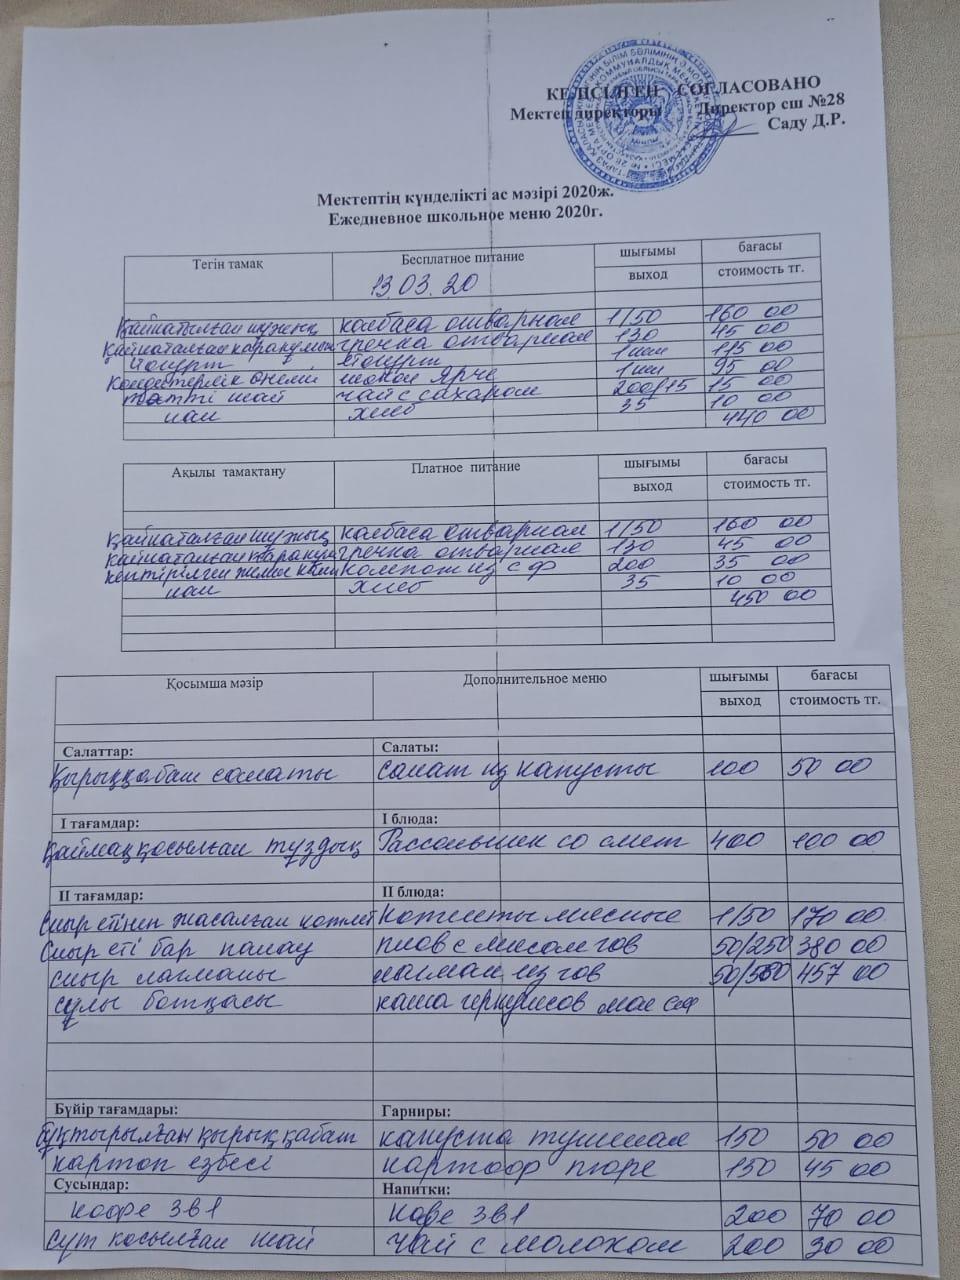 КЕЛІСІЛГЕН СОГЛАСОВАНО
Мектеп директоры Директор сш №28
Саду Д.Р.
Мектептің күнделікті ас мәзірі 2020ж.
Ежедневное школьное меню 2020г.
Тегін тамақ Бесплатное питание шығымы бағасы
13.03.20 выход стоимость тг.
Қайнатылған шұжық колбаса отварная 1/50 160 00
Қайнаталған қарақұмық гречка отварная 130 45 00
йогурт йогурт 1шт 115 00
Кондитерлік өнімі шокол Ярче 1шт 95 00
тәтті шай чай с сахаром 200/15 15 00
нан хлеб 35 10 00
440 00
Ақылы тамақтану Платное питание шығымы бағасы
выход стоимость тг.
Қайнаталған шұжық колбаса отварная 1/50 160 00
Қайнаталған қарақұм гречка отварная 130 45 00
кептірілген жеміс компот из с ф 200 35 00
нан хлеб 35 10 00
450 00
Қосымша мәзір Дополнительное меню шығымы бағасы
выход стоимость тг.
Салаттар: Салаты:
Қырыққабат салаты салат из капусты 100 50 00
I тағамдар: I блюда:
Қаймақ қосылған тұздық Рассольник со смет 400 100 00
II тағамдар: II блюда:
Сиыр етінен жасалған котлет Котлеты мясные 1/50 170 00
Сиыр еті бар палау плов с мясом гов 50/250 380 00
сиыр лагманы лагман из гов 457 00
сұлы ботқасы каша геркулесов мол
Бүйір тағамдары: Гарниры:
бұқтырылған қырыққабат капуста тушеная 150 50 00
картоп езбесі картоф пюре 150 45 00
Сусындар: Напитки:
кофе 3в1 кофе 3в1 200 70 00
сүт қосылған шай чай с молоком 200 30 00